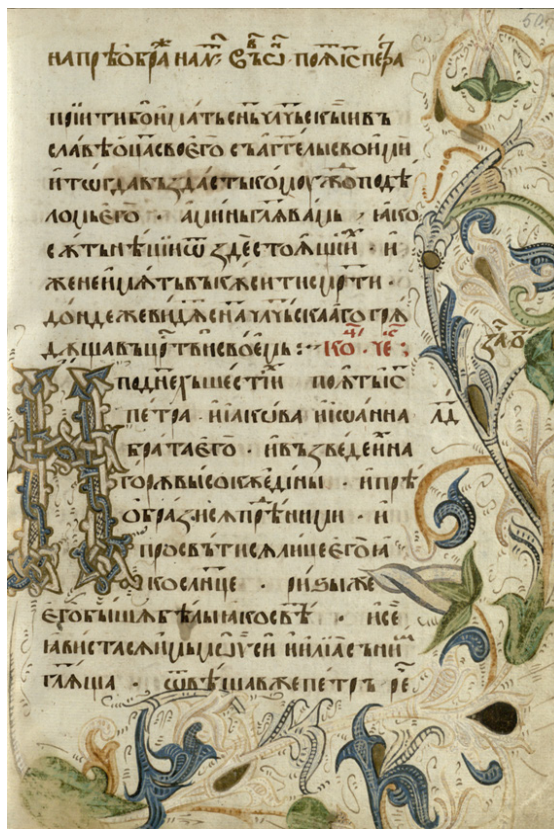 на прѣобра на л҃ · еѵⷢ ѿ поѧⷮ іс҃ петра
прїити бо имать сн҃ь чл҃чьскыи въ
славѣ оц҃а своего съ агг҃елы своими
и тогда въздасть комоуждо по дѣ
ломь его · аминь гл҃ѫ вамь , ꙗко
сѫть нѣции ѿ зде стоѧщиⷯ · и
же не имѫть въкѫсити смр҃ти ·
дондеже видѧⷮ сн҃а чл҃чьскааго грѧ
дѫща въ црⷭ҇твїи своемь :· коⷰ҇ · чеⷭ҇ :
за҃ о҃
И по дне҃хь шестїи поѧⷮ іс҃
петра · и іакѡва и іѡанна
лд
брата его · и възведе ѧ на
горѫ высокѫ едины · и прѣ
образисѧ прѣⷣ ними · и
просвѣтисѧ лице его ꙗ
ко слн҃це · ризы же
его бышѫ бѣлы ꙗко свѣⷮ · и се
ꙗвистасѧ имь мѡѵси и илїа съ ниⷨ
гл҃ѧща · ѿвѣщав же петръ реⷱ҇